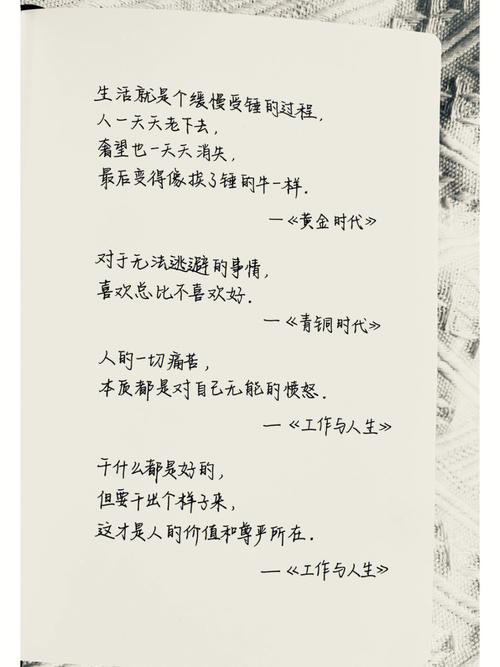 生活就是个缓慢受锤的过程,
人一天天老下去,
奢望也一天天消失,
最后变得像挨了锤的牛一样.
—《黄金时代》
对于无法逃避的事情,
喜欢总比不喜欢好.
—《青铜时代》
人的一切痛苦,
本质都是对自己无能的愤怒.
—《工作与人生》
干什么都是好的,
但要干出个样子来,
这才是人的价值和尊严所在.
—《工作与人生》